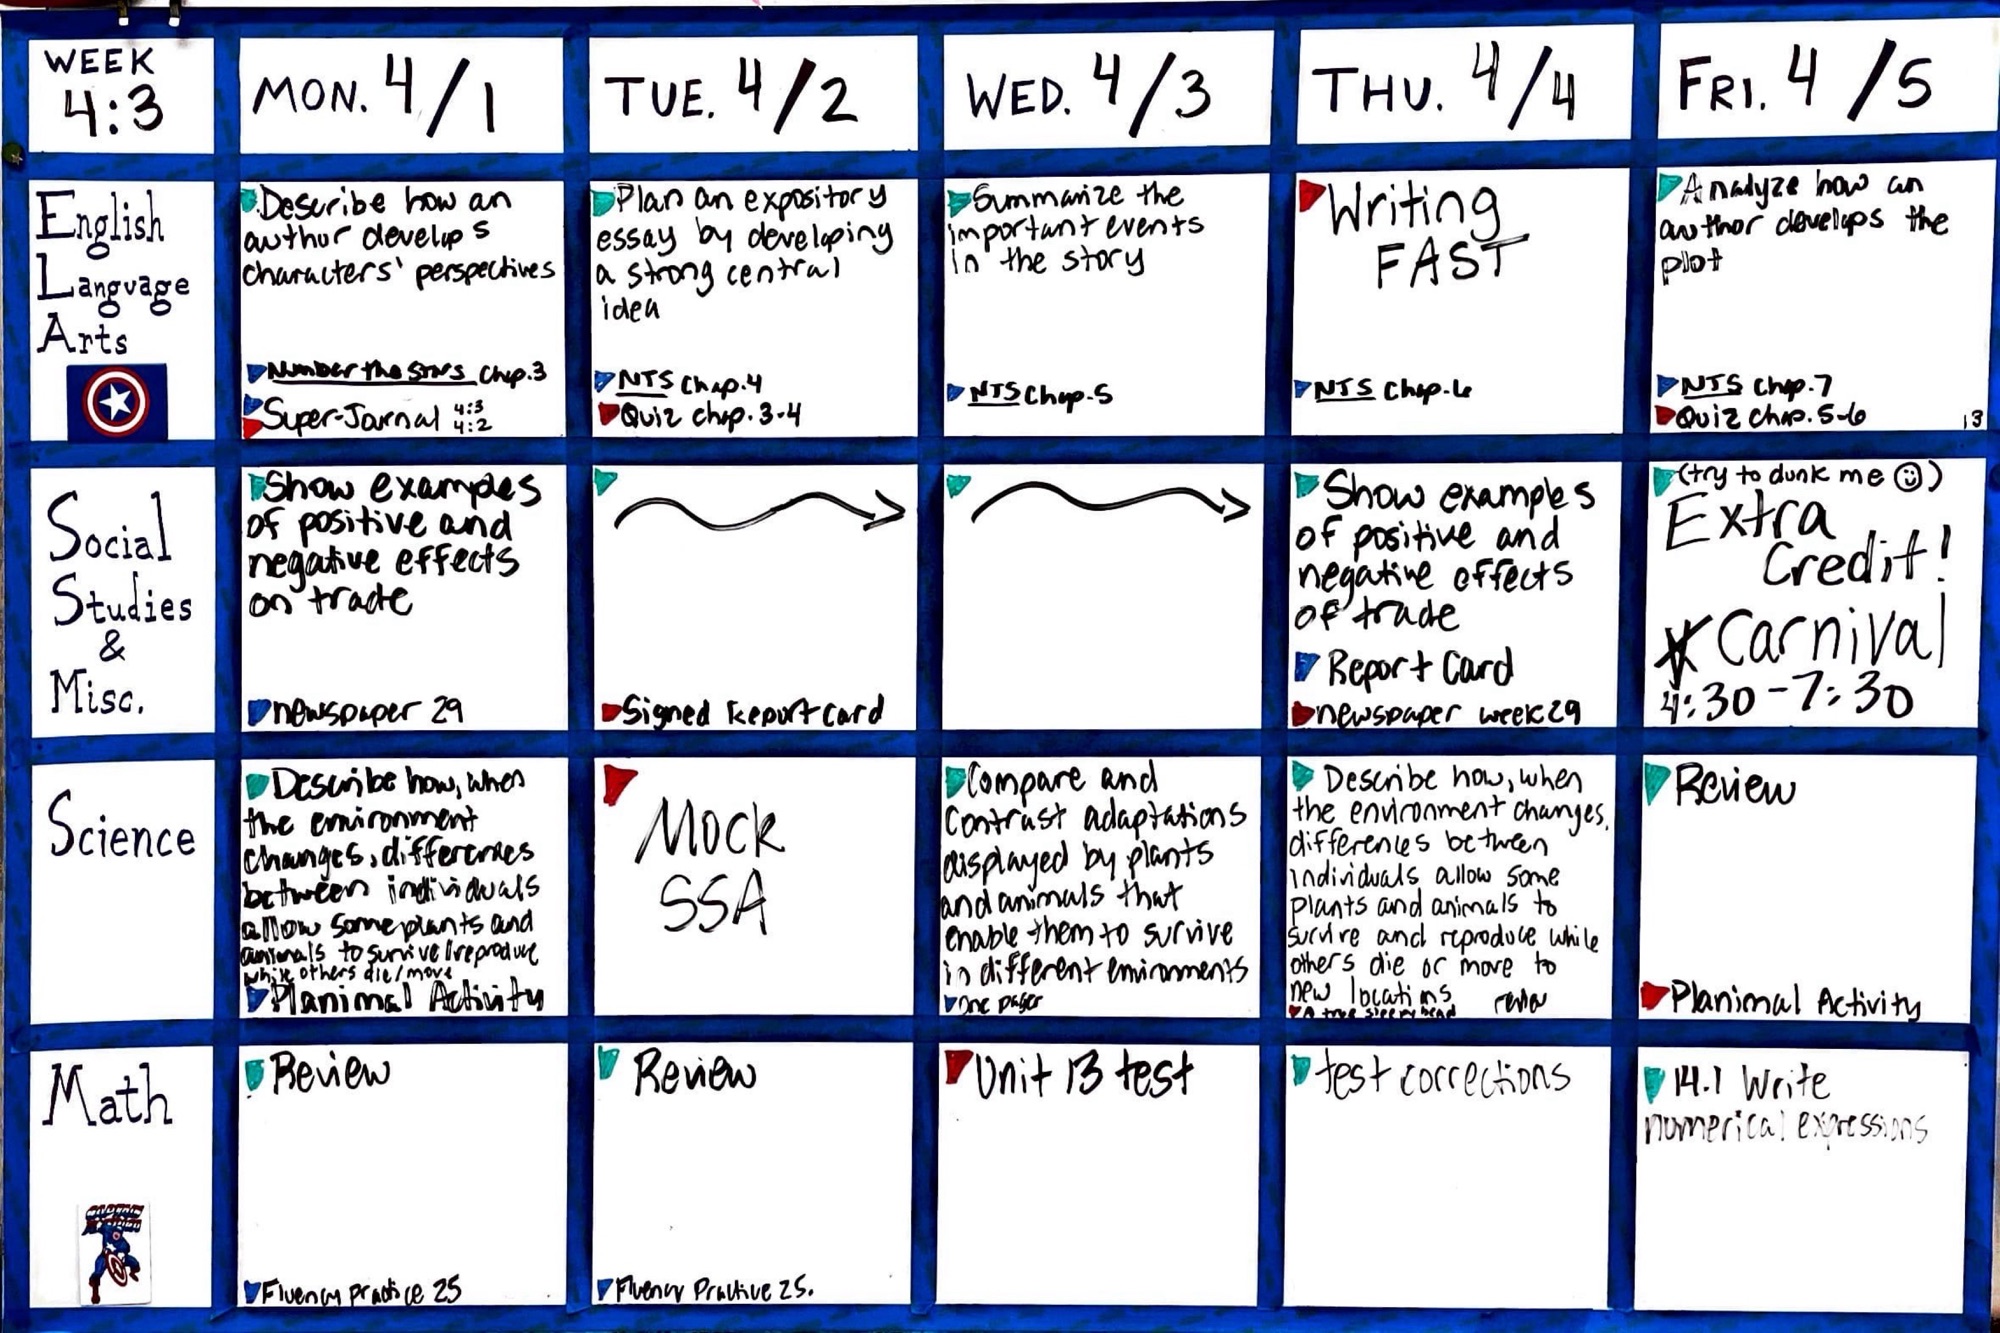 WEEK
4:3
MON. 4/1
TUE. 4/2
WED. 4/3
THU. 4/4
FRI. 4/5
English
Language
Arts
Describe how an
author develops
characters' perspectives
Number the Stars Chap.3
Super-Journal 4:3
4:2
Plan an expository
essay by developing
a strong central
idea
NTS Chap.4
Quiz chap.3-4
Summarize the
important events
in the story
NTS Chap.5
Writing
FAST
NTS Chap.6
Analyze how an
author develops the
plot
NTS Chap.7
Quiz Chap.5-6
13
Social
Studies
&
Misc.
Show examples
of positive and
negative effects
on trade
newspaper 29
Signed Report Card
Show examples
of positive and
negative effects
of trade
Report Card
newspaper week 29
(try to dunk me ☺)
Extra
Credit!
Carnival
4:30-7:30
Science
Describe how, when
the environment
changes, differences
between individuals
allow some plants and
animals to survive/reproduce
while others die/move
Planimal Activity
Mock
SSA
Compare and
Contrast adaptations
displayed by plants
and animals that
enable them to survive
in different environments
One pager
Describe how, when
the environment changes,
differences between
individuals allow some
plants and animals to
survive and reproduce while
others die or move to
new locations
Review
Planimal Activity
Math
Review
Fluency practice 25
Review
Fluency Practice 25.
Unit 13 test
test corrections
14.1 Write
numerical expressions